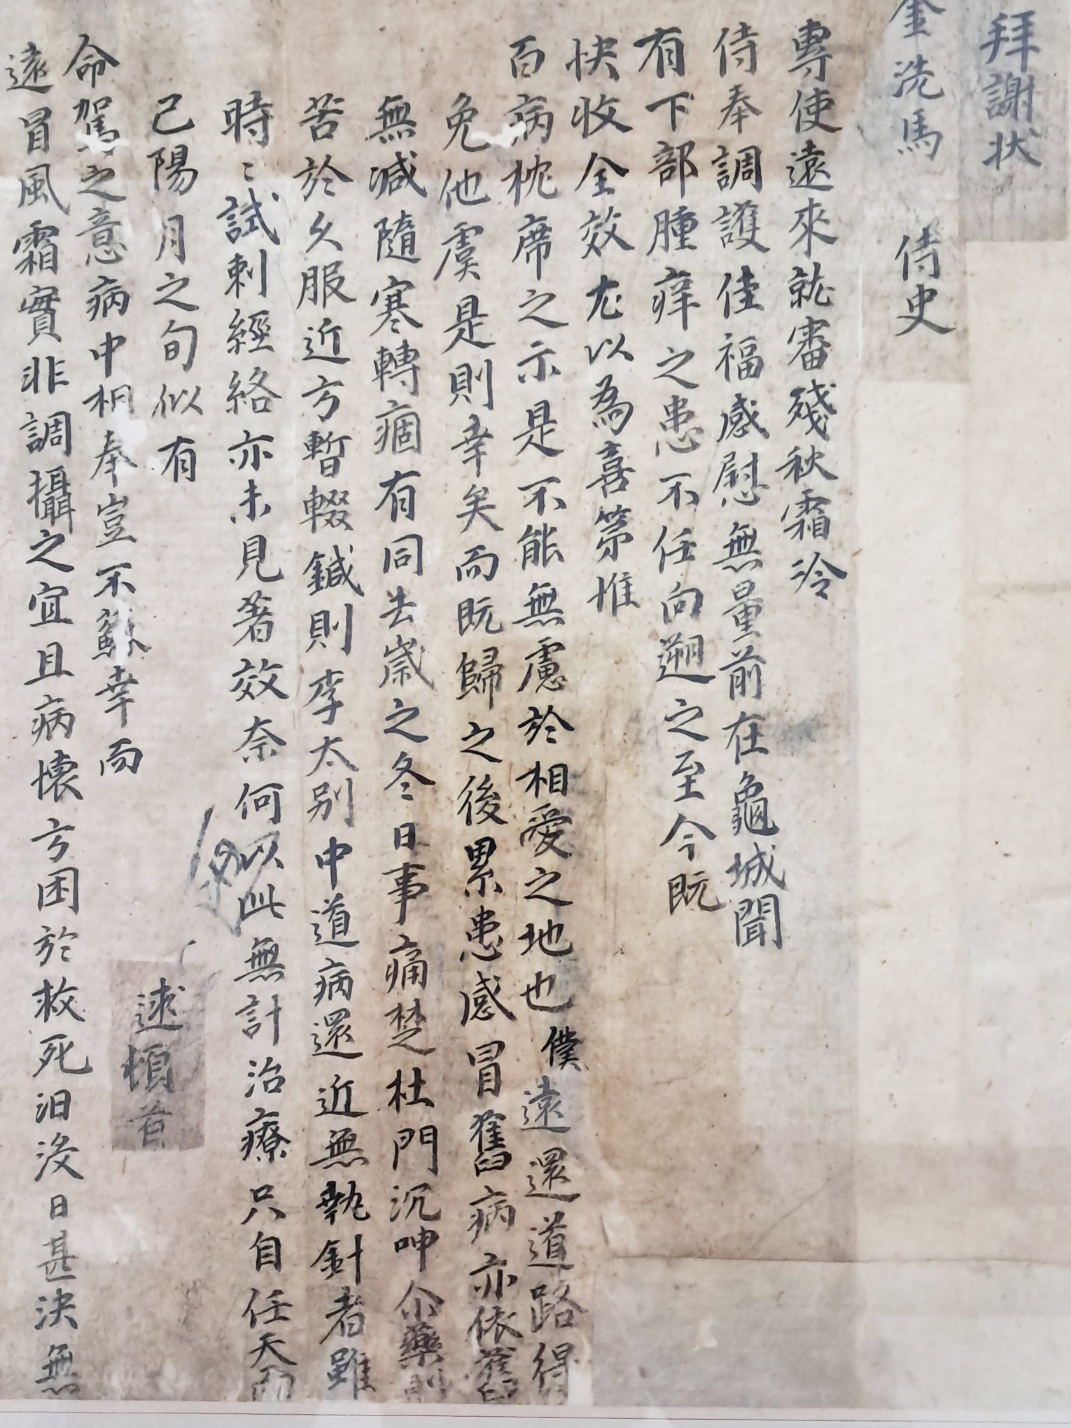 拜謝狀
金洗馬 侍史
專使遠來就審殘秋霜冷
侍奉調護佳福感慰無量前在龜城聞
有下部腫痒之患不任向遡之至今旣
快收全效尤以為喜第惟
百病枕席之示是不能無慮於相愛之地也僕遠還道路得
免他虞是則幸矣而旣歸之後累患感冒舊病亦依舊
無減隨寒轉痼有同去歲之冬日事痛楚杜門沉呻尒藥則
苦於久服近方暫輟鍼則李太別中道病還近無執針者雖
時〻試刺經絡亦未見著效奈何以此無計治療只自任天而
已陽月之旬似有
命駕之意病中相奉豈不蘇幸而
遠冒風霜實非調攝之宜且病懷方困於救死汨沒日甚決無
逑頓首